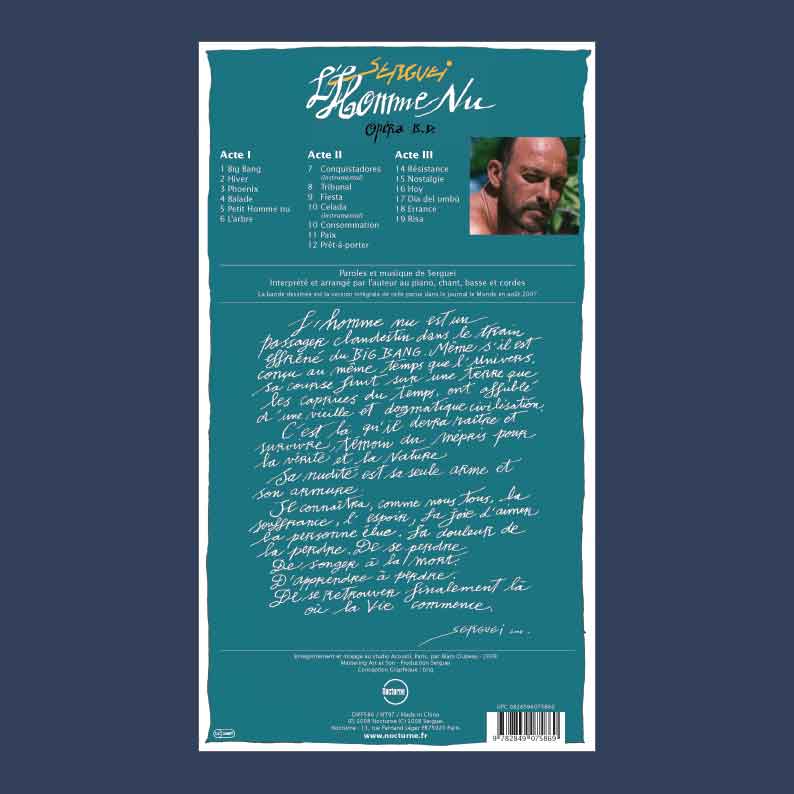 SERGUEI
L'Homme Nu
Opéra B.D.
Acte I
1 Big Bang
2 Hiver
3 Phoenix
4 Balade
5 Petit Homme nu
6 L'arbre
Acte II
7 Conquistadores
(Instrumental)
8 Tribunal
9 Fiesta
10 Celada
(Instrumental)
10 Consommation
11 Paix
12 Prêt-à-porter
Acte III
14 Résistance
15 Nostalgie
16 Hoy
17 Día del umbú
18 Errance
19 Risa
Paroles et musique de Serguei
Interprété et arrangé par l'auteur au piano, chant, basse et cordes
La bande dessinée est la version intégrale de celle parue dans le journal le Monde en août 2007
L'homme nu est un
passager clandestin dans le train
effréné du BIG BANG. Même s'il est
conçu au même temps que l'Univers,
sa course finit sur une terre que
les caprices du temps, ont affublé
d'une vieille et dogmatique civilisation.
C'est là qu'il devra naître et
survivre, témoin du mépris pour
la vérité et la Nature
Sa nudité est sa seule arme et
son armure
Il connaîtra, comme nous tous, la
souffrance, l'espoir, la joie d'aimer
la personne élue. La douleur de
la perdre. De se perdre
De songer à la mort.
D'apprendre à perdre.
De se retrouver finalement là
où la Vie commence.
SERGUEI
Enregistrement et mixage au studio Acousti, Paris, par Alain Cluzeau - 1998
Mastering Art et Son - Production Serguei
Conception Graphique :
Nocturne
/ NT97 / Made in China
(P) 2008 Nocturne (C) 2008 Serguei
Nocturne : 11, rue Fernand Léger FR75020 Paris
www.nocturne.fr
UPC
9 782849 075869